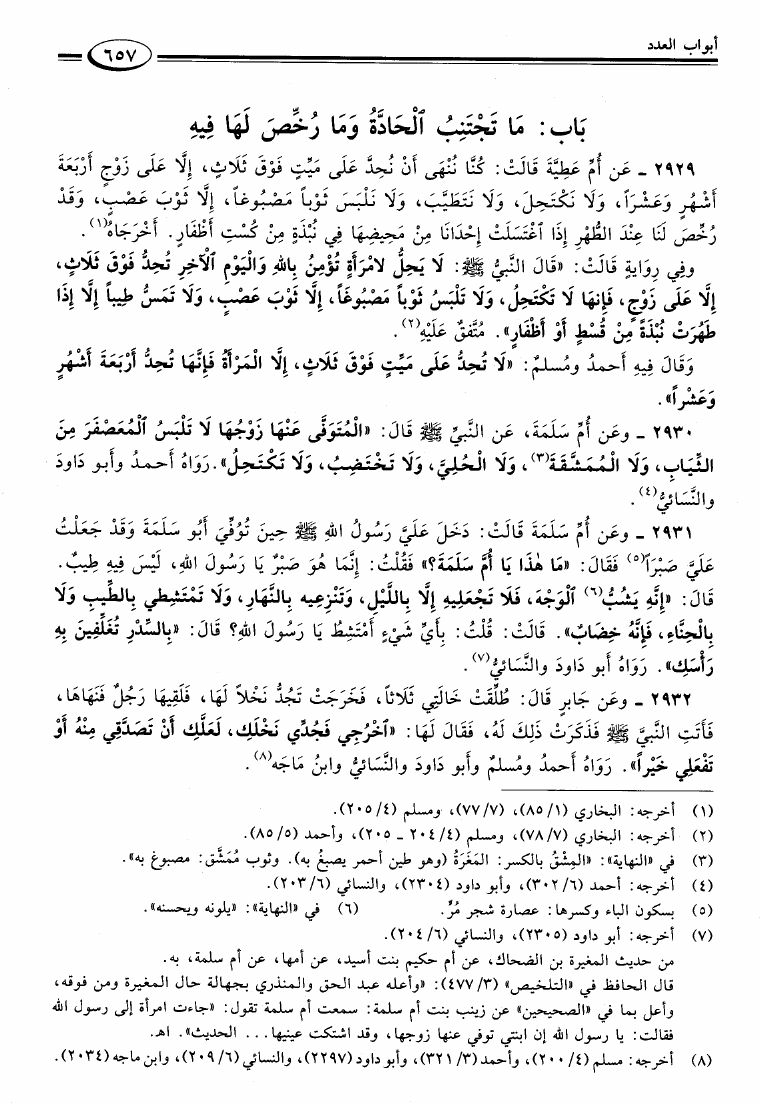 أبواب العدد
٦٥٧
بَاب: مَا تَجْتَنِبُ ٱلْحَادَّةُ وَمَا رُخِّصَ لَهَا فِيهِ
٢٩٢٩ ـ عَن أُمِّ عَطِيَّةَ قَالَتْ: كُنَّا نُنْهَى أَنْ نُحِدَّ عَلَى مَيِّتٍ فَوْقَ ثَلَاثٍ، إِلَّا عَلَى زَوْجٍ أَرْبَعَةَ
أَشْهُرٍ وَعَشْرَاً، وَلَا نَكْتَحِلَ، وَلَا نَتَطَيَّبَ، وَلَا نَلْبَسَ ثَوْباً مَصْبُوغاً، إِلَّا ثَوْبَ عَصْبٍ، وَقَدْ
رُخِّصَ لَنَا عِنْدَ الطُّهْرِ إِذَا ٱغْتَسَلَتْ إِحْدَانَا مِنْ مَحِيضِهَا فِي نُبْذَةٍ مِنْ كُسْتِ أَظْفَارٍ. أَخْرَجَاهُ(١).
وَفِي رِوَايَةٍ قَالَتْ: «قَالَ النَّبِيُّ ﷺ: لَا يَحِلُّ لامْرَأَةٍ تُؤْمِنُ بِاللهِ وَالْيَوْمِ الْآخِرِ تُحِدُّ فَوْقَ ثَلَاثٍ،
إِلَّا عَلَى زَوْجٍ، فَإِنهَا لَا تَكْتَحِلُ، وَلَا تَلْبَسُ ثَوْباً مَصْبُوغاً، إِلَّا ثَوْبَ عَصْبٍ، وَلَا تَمَسُّ طِيباً إِلَّا إِذَا
طَهُرَتْ نُبْذَةً مِنْ قُسْطٍ أَوْ أَظْفَارٍ». مُتَّفقٌ عَلَيْهِ(٢).
وَقَالَ فِيهِ أَحمدُ ومُسلمٌ: «لَا تُحِدُّ عَلَى مَيِّتٍ فَوْقَ ثَلَاثٍ، إِلَّا الْمَرْأَةُ فَإِنَّهَا تُحِدُّ أَرْبَعَةَ أَشْهُرٍ
وَعَشْراً».
٢٩٣٠ ـ وعَن أُمِّ سَلَمَةَ، عَن النَّبِيِّ ﷺ قَالَ: «الْمُتَوَفَّى عَنْهَا زَوْجُهَا لَا تَلْبَسُ ٱلْمُعَصْفَرَ مِنَ
الثِّيَابِ، وَلَا الْمُمَشَّقَةَ(٣)، وَلَا الْحُلِيَّ، وَلَا تَخْتَضِبُ، وَلَا تَكْتَحِلُ». رَوَاهُ أَحمدُ وأبو دَاودَ
والنَّسائيُّ(٤).
٢٩٣١ ـ وعَن أُمِّ سَلَمَةَ قَالَتْ: دَخَلَ عَلَيَّ رَسُولُ اللهِ ﷺ حِينَ تُوُفِّيَ أَبُو سَلَمَةَ وَقَدْ جَعَلْتُ
عَلَيَّ صَبْرَاً(٥) فَقَالَ: «مَا هٰذَا يَا أُمَّ سَلَمَةَ؟» فَقُلْتُ: إِنَّمَا هُوَ صَبْرٌ يَا رَسُولَ اللهِ، لَيْسَ فِيهِ طِيبٌ.
قَالَ: «إِنَّهُ يَشُبُّ(٦) ٱلْوَجْهَ، فَلَا تَجْعَلِيهِ إِلَّا بِاللَّيْلِ، وَتَنْزِعِيهِ بِالنَّهَارِ، وَلَا تَمْتَشِطِي بِالطِّيبِ وَلَا
بِالْحِنَّاءِ، فَإِنَّهُ خِضَابٌ». قَالَتْ: قُلْتُ: بِأَيِّ شَيْءٍ أَمْتَشِطُ يَا رَسُولَ اللهِ؟ قَالَ: «بِالسِّدْرِ تُغَلِّفِينَ بِهِ
رَأْسَكِ». رَوَاهُ أبو دَاودَ والنَّسائيُّ(٧).
٢٩٣٢ ـ وعَن جَابرٍ قَالَ: طُلِّقَتْ خَالَتِي ثَلَاثاً، فَخَرَجَتْ تَجُدُّ نَخْلاً لَهَا، فَلَقِيهَا رَجُلٌ فَنَهَاهَا،
فَأَتَتِ النَّبِيَّ ﷺ فَذَكَرَتْ ذٰلِكَ لَهُ، فَقَالَ لَهَا: «ٱخْرُجِي فَجُدِّي نَخْلَكِ، لَعَلَّكِ أَنْ تَصَدَّقِي مِنْهُ أَوْ
تَفْعَلِي خَيْراً». رَوَاهُ أَحمدُ ومُسلمٌ وأبو دَاودَ والنَّسائيُّ وابنُ مَاجَه(٨).
(١) أخرجه: البخاري (٨٥/١)، (٧٧/٧)، ومسلم (٢٠٥/٤).
(٢) أخرجه: البخاري (٧٨/٧)، ومسلم (٢٠٤/٤ ـ ٢٠٥)، وأحمد (٨٥/٥).
(٣) في «النهاية»: «المِشْقُ بالكسر: المَغَرَةُ (وهو طين أحمر يصبغُ به). وثوب مُمَشَّق: مصبوغ به».
(٤) أخرجه: أحمد (٣٠٢/٦)، وأبو داود (٢٣٠٤)، والنسائي (٢٠٣/٦).
(٥) بسكون الباء وكسرها: عصارة شجر مُرٍّ. (٦) في «النهاية»: «يلونه ويحسنه».
(٧) أخرجه: أبو داود (٢٣٠٥)، والنسائي (٢٠٤/٦).
من حديث المغيرة بن الضحاك، عن أم حكيم بنت أسيد، عن أمها، عن أم سلمة، به.
قال الحافظ في «التلخيص» (٤٧٧/٣): «وأعله عبد الحق والمنذري بجهالة حال المغيرة ومن فوقه،
وأعل بما في «الصحيحين» عن زينب بنت أم سلمة: سمعت أم سلمة تقول: «جاءت امرأة إلى رسول الله
فقالت: يا رسول الله إن ابنتي توفي عنها زوجها، وقد اشتكت عينيها... الحديث». اهـ.
(٨) أخرجه: مسلم (٢٠٠/٤)، وأحمد (٣٢١/٣)، وأبو داود (٢٢٩٧)، والنسائي (٢٠٩/٦)، وابن ماجه (٢٠٣٤).